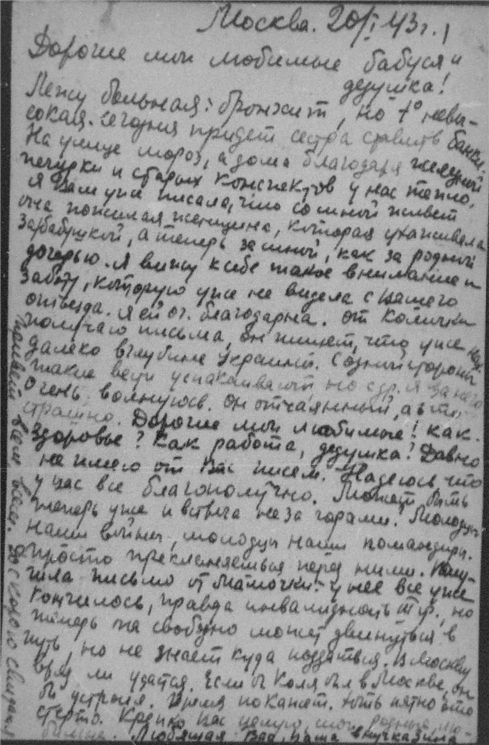 Москва. 20/I 43 г.
Дорогие мои любимые бабуся и
дедушка!
Лежу больная: бронхит, но t° невы-
сокая. Сегодня придет сестра ставить банки.
На улице мороз, а дома благодаря железной
печурки и старых конспектов у нас тепло.
Я Вам уже писала, что со мной живет
одна пожилая женщина, которая ухаживала
за бабушкой, а теперь за мной, как за родной
дочерью. Я вижу к себе такое внимание и
заботу, которую уже не видела с Вашего
отъезда. Я ей оч. благодарна. От Колички
получаю письма, он пишет, что уже
далеко в глубине Украины. С одной стороны
такие вещи успакаивают, но с др. я за него
очень волнуюсь. Он отчаянный, а это
страшно. Дорогие мои любимые! Как
здоровье? Как работа, дедушка? Давно
не имею от Вас писем. Надеюсь что
у вас все благополучно. Может быть
теперь уже и встреча не за горами. Молодцы
наши войны, молодцы наши командиры.
просто преклоняешься перед ними. Полу-
чила письмо от Мамочки. У нее все уже
кончилось, правда инвалидность гр., но
теперь она свободно может двинуться в
путь, но не знает куда податься. В Москву
вряд ли удастся. Если б Коля был в Москве, он
бы устроил. Время покажет. Хоть пятно это
стерто. Крепко Вас целую, мои родные, лю-
бимые. Любящая Вас, Ваша внучка
Привет Всем Всем. До скорого свидания